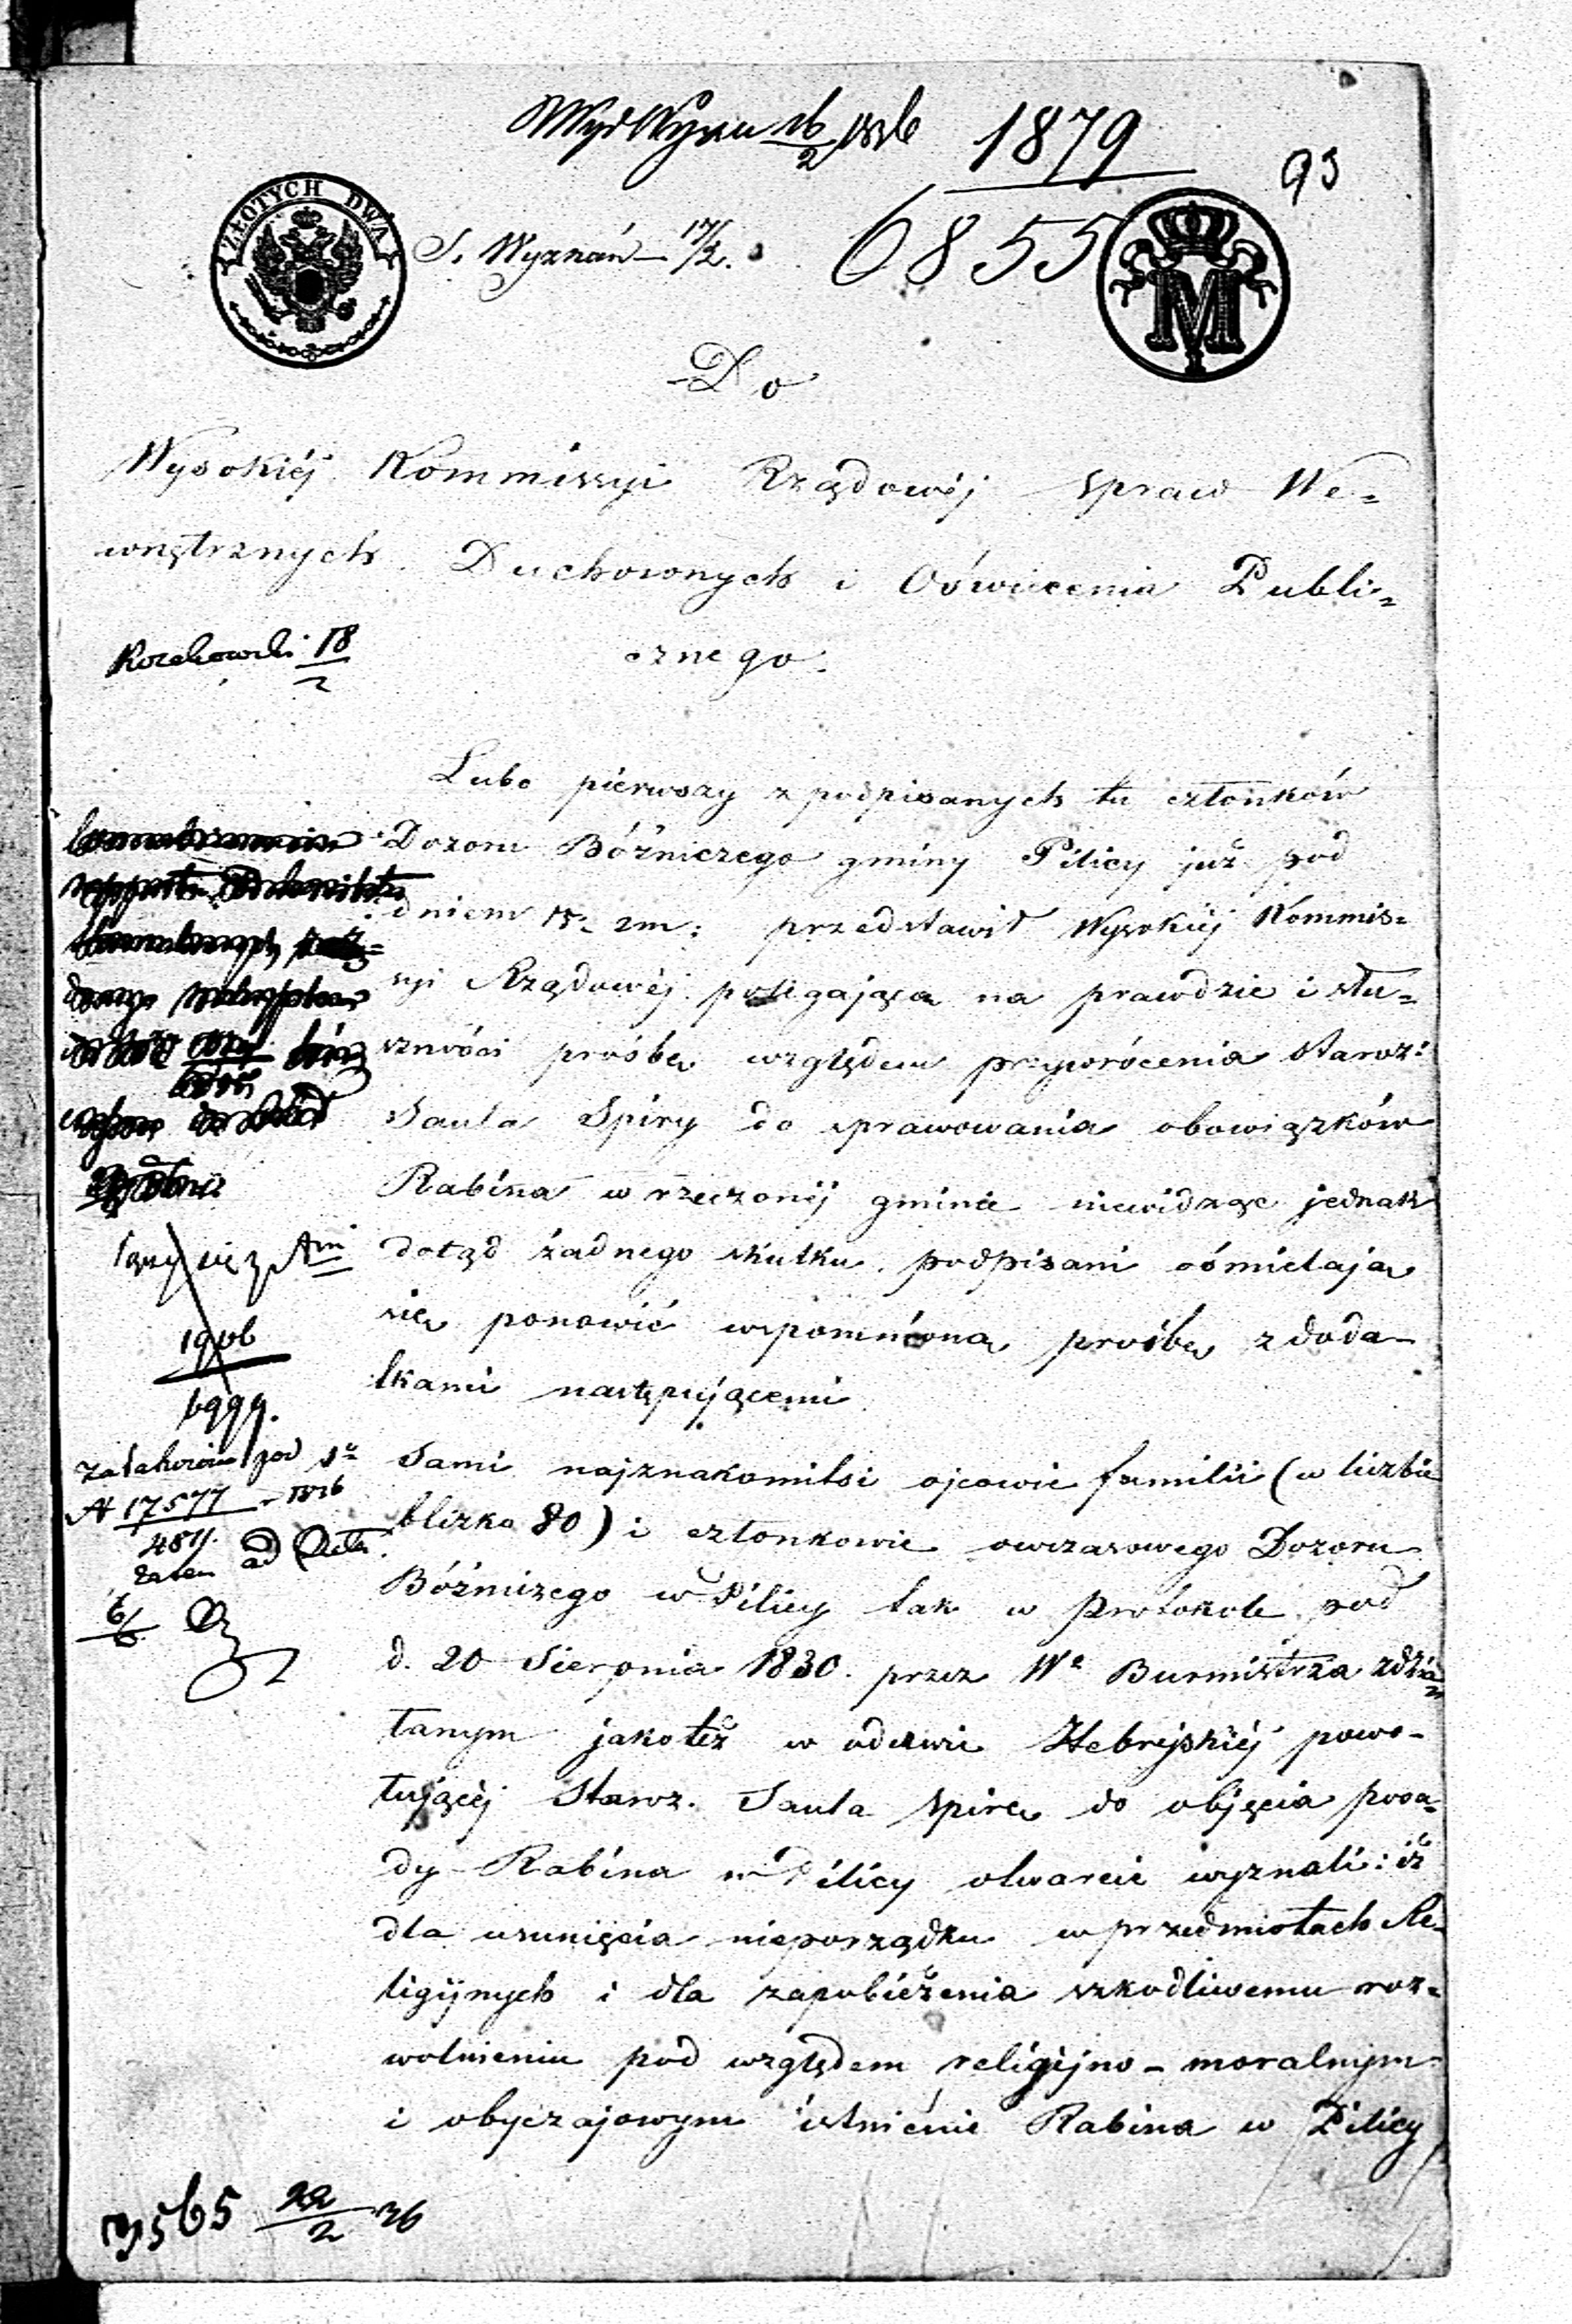 Wyd Wyzn 16/2 1836
1879
93
ZŁOTYCH DWA
S. Wyznań 17/2.
6855
M
Do
Wysokiéj Kommissyi Rządowéj spraw We=
wnętrznych Duchownych i Oświecenia Publi=
cznego.
18/2
Lubo pierwszy z podpisanych tu członków
Dozoru Bóźniczego gminy Pilicy już pod
dniem 15. zm: przedstawił Wysokiéj Kommis=
syi Rządowéj polegającą na prawdzie i słu=
szności prośbę względem przywrócenia staroz:
Saula Spiry do sprawowania obowiązków
Rabina w rzeczonéj gminie niewidząc jednak
dotąd żadnego skutku, podpisani ośmielają
się ponowić wspomnioną prośbę z doda-
tkami następującemi
6999.
Załatwione pod
N 17577 – 1836
4811.
zatem ad Acta
6/6
Sami najznakomitsi ojcowie familii (w liczbie
blizko 80) i członkowie owczasowego Dozoru
Bóźniczego w Pilicy tak w protokole pod
d. 20 Sierpnia 1830. przez Wo Burmistrza zdzia=
łanym jakoteż w odezwie Hebrejskiéj powo-
łującéj Staroz. Saula Spirę do objęcia posa=
dy Rabina w Pilicy otwarcie wyznali: iż
dla usunięcia nieporządku w przedmiotach Re-
ligijnych i dla zapobieżenia szkodliwemu roz=
wolnieniu pod względem religijno-moralnym
i obyczajowym istnienie Rabina w Pilicy
22/2 36